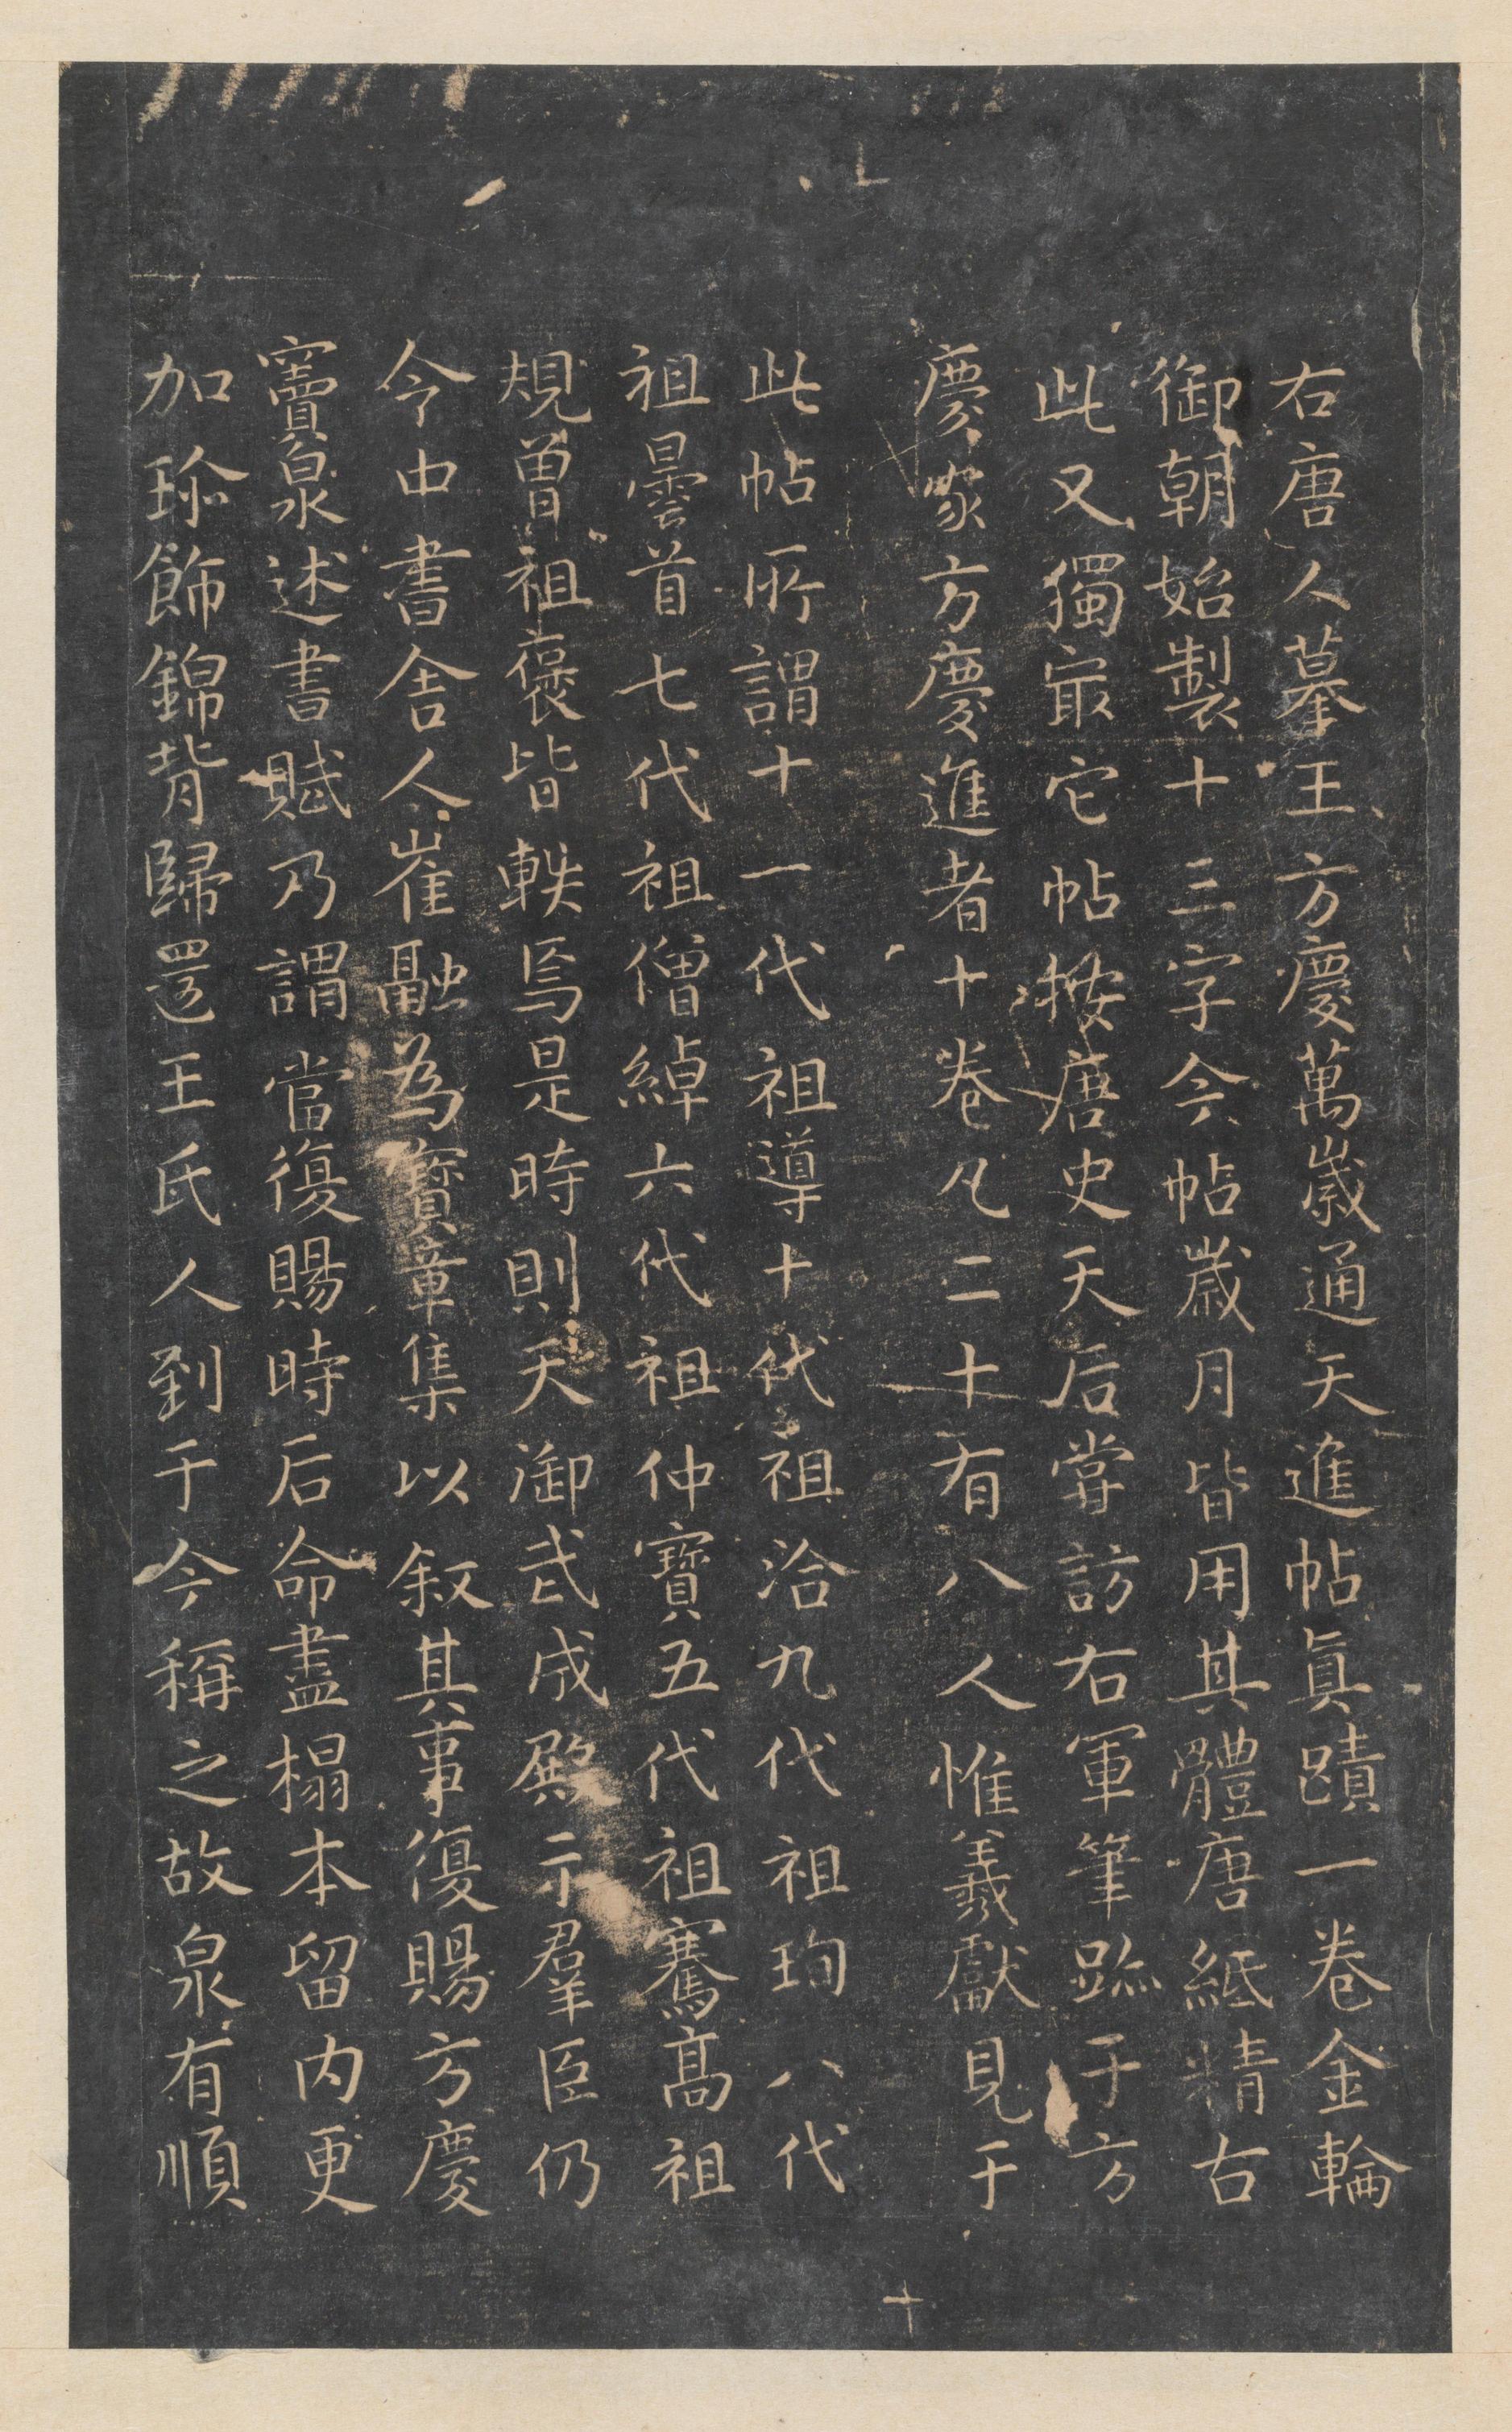 右唐人摹王方慶萬歲通天進帖眞蹟一卷金輪
御朝始製十三字今帖歲月皆用其體唐紙精古
此又獨冣它帖按唐史天后嘗訪右軍筆跡于方
慶家方慶進者十卷凡二十有八人惟羲獻見于
此帖所謂十一代祖導十代祖洽九代祖珣八代
祖曇首七代祖僧綽六代祖仲寶五代祖騫高祖
規曾祖褒皆軼焉是時則天御武成殿示羣臣仍
令中書舍人崔融為寶章集以叙其事復賜方慶
竇泉述書賦乃謂當復賜時后命盡榻本留內更
加珎飾錦背歸還王氏人到于今稱之故泉有順